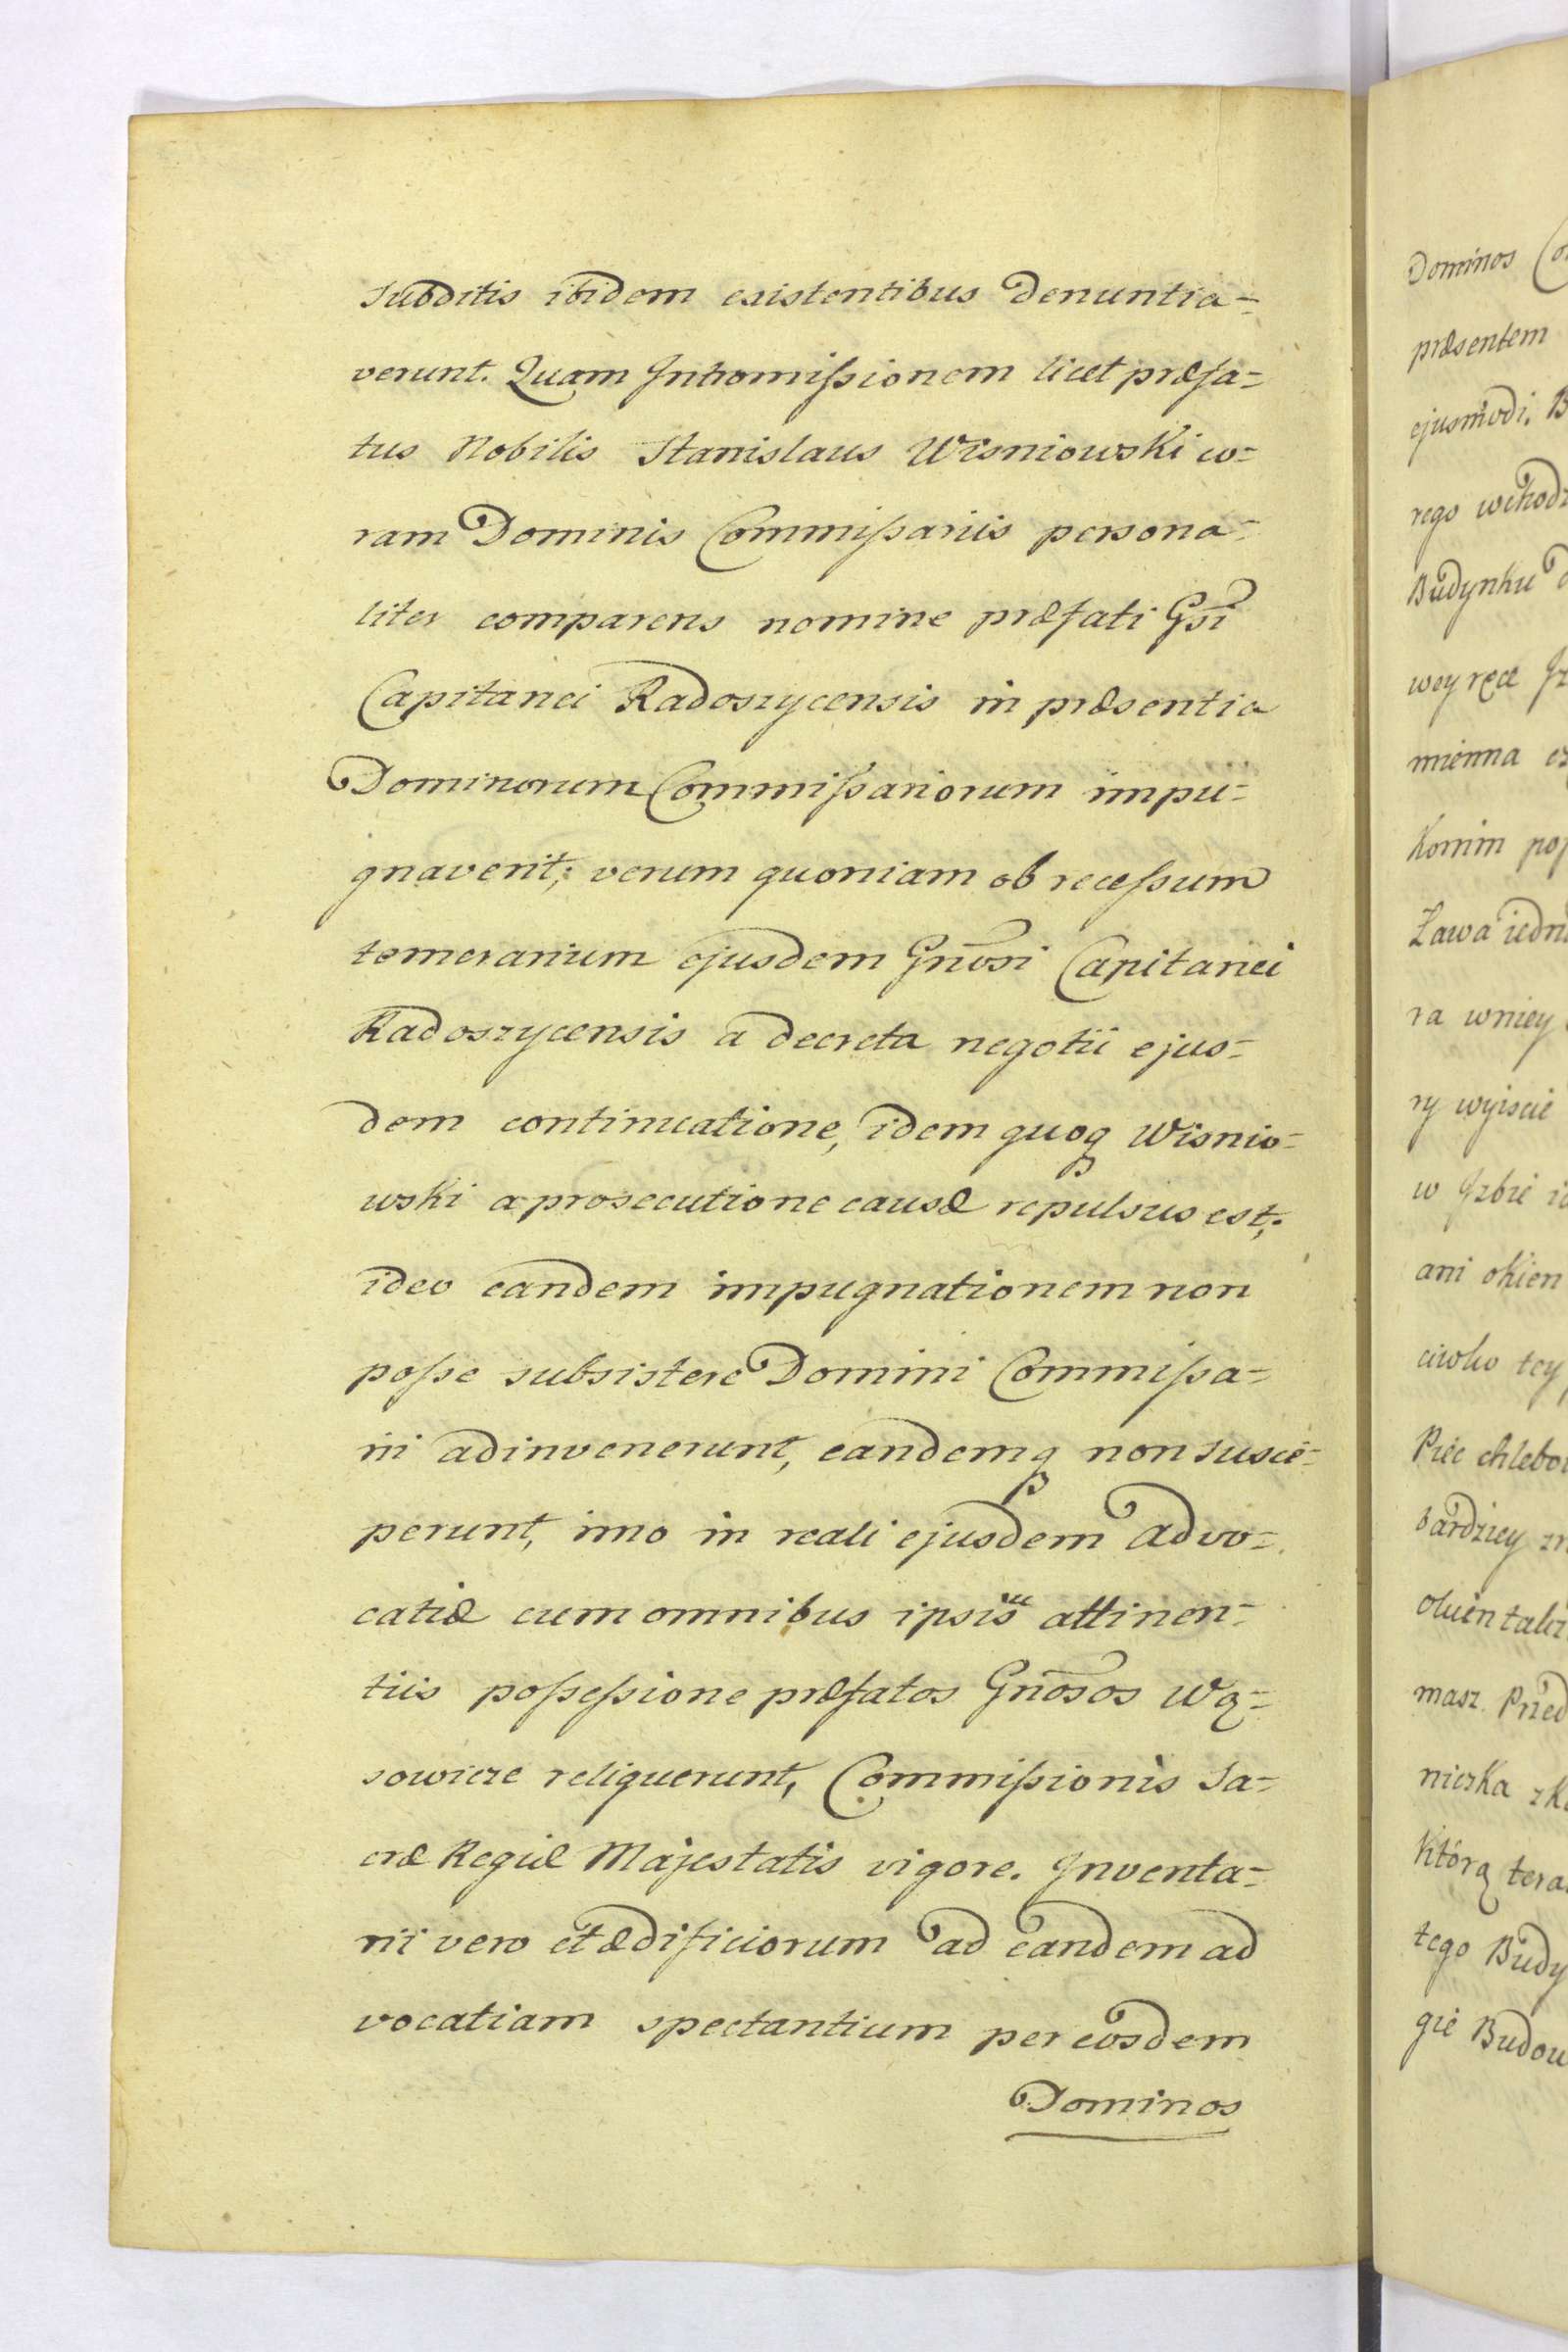 Subditis ibidem existentibus denuntia=
verunt. Quam Intromißionem licet præfa=
tus Nobilis Stanislaus Wisniowski co=
ram Dominis Commißariis persona=
liter comparens nomine præfati Gsi
Capitanei Radoszycensis in præsentia
Dominorum Commißariorum impu=
gnaverit; verum quoniam ob receßum
temerarium ejusdem Gnosi Capitanei
Radoszycensis a decreta negotii ejus=
dem continuatione, idem quoq Wisnio=
wski a prosecutione causæ repulsus est;
ideo eandem impugnationem non
poße subsistere Domini Commißa=
rii adinvenerunt, eandemq non susce=
perunt, imo in reali ejusdem advo=
catiæ cum omnibus ipsis attinen=
tiis poßeßione præfatos Gnosos Wą=
sowicze reliquerunt, Commißionis Sa=
cræ Regiæ Majestatis vigore. Inventa=
rii vero et ædificiorum ad eandem ad
vocatiam spectantium per eosdem
Dominos
Dominos
præsentem
ejusmodi. B
rego wchodz
Budynku d
wey ręce Iz
mienna cz
Komin pop
Ława iedna
ra wniey
ry wyiscie
w Izbie ie
ani okien
tey
Piec chlebo
bardziey zr
masz. Przed
niczka zk
Którą tera
tego Budy
gie Budow